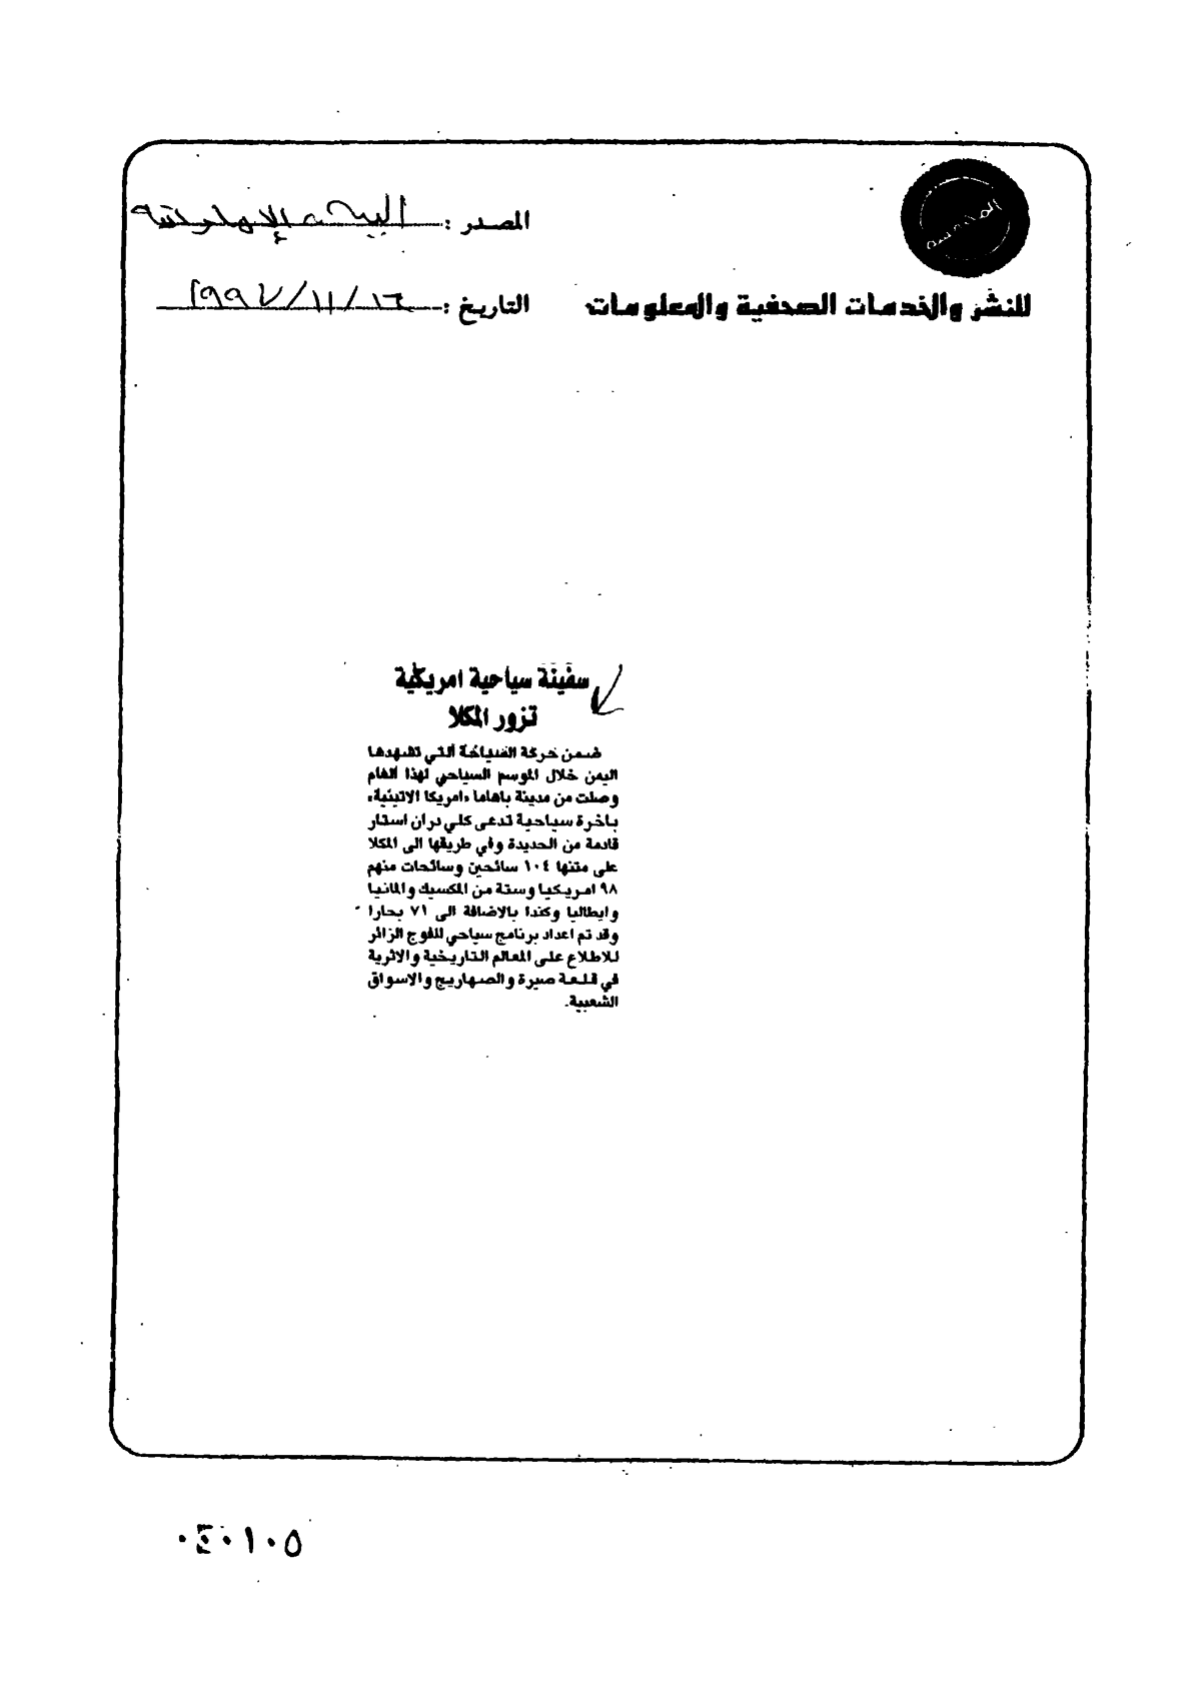 المصدر : البيان الإماراتية
للنشر والخدمات الصحفية والمعلومات
التاريخ : ١٦/ ١١/ ١٩٩٧
سفينة سياحية امريكية
تزور المكلا
ضمن حركة السياحة التي تشهدها
اليمن خلال الموسم السياحي لهذا العام
وصلت من مدينة باهاما «امريكا الاتينية»
باخرة سياحية تدعى كلي دران استار
قادمة من الحديدة وفي طريقها الى المكلا
على متنها ١٠٤ سائحين وسائحات منهم
٩٨ امريكيا وستة من المكسيك والمانيا
وايطاليا وكندا بالاضافة الى ٧١ بحارا
وقد تم اعداد برنامج سياحي للفوج الزائر
للاطلاع على المعالم التاريخية والاثرية
في قلعة صيرة والصهاريج والاسواق
الشعبية.